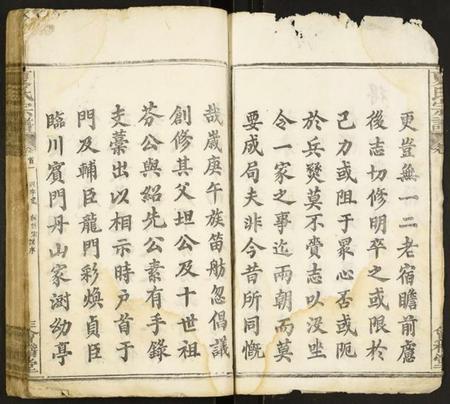 更豈無一二老宿瞻前慮
後志切修明卒之或限於
己力或阻于眾心否或阨
於兵燹莫不賫志以没坐
令一家之事迄兩朝而莫
要成局夫非今昔所同慨
哉歲庚午族笛舫忽倡議
創修其父坦公及十世祖
芬公與紹先公素有手錄
支藁出以相示時戸首于
門及輔臣龍門彩煥貞臣
臨川賓門丹山家渕幼亭
氏宗譜
卷首
三
堂